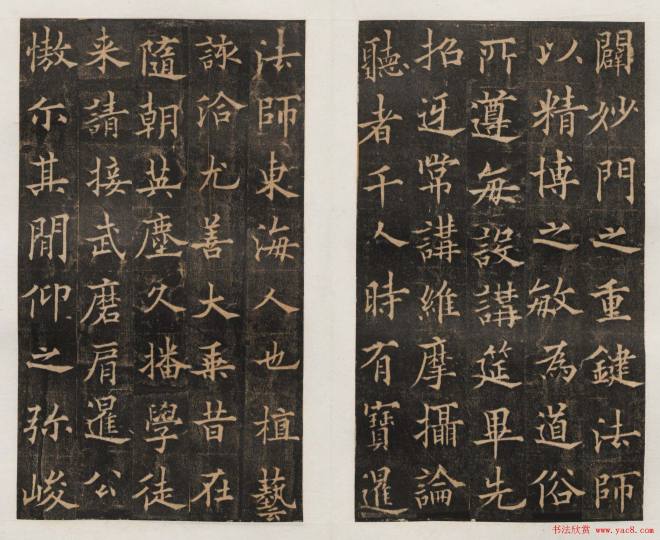 闢妙門之重鍵法師
以精博之敏為道俗
所遵每設講筵畢先
招迓常講維摩攝論
聽者千人時有寶暹
法師東海人也植藝
該洽尤善大乘昔在
隨朝英塵久播學徒
来請接武磨肩暹公
慠尓其間仰之弥峻
书法欣赏 www.yac8.com